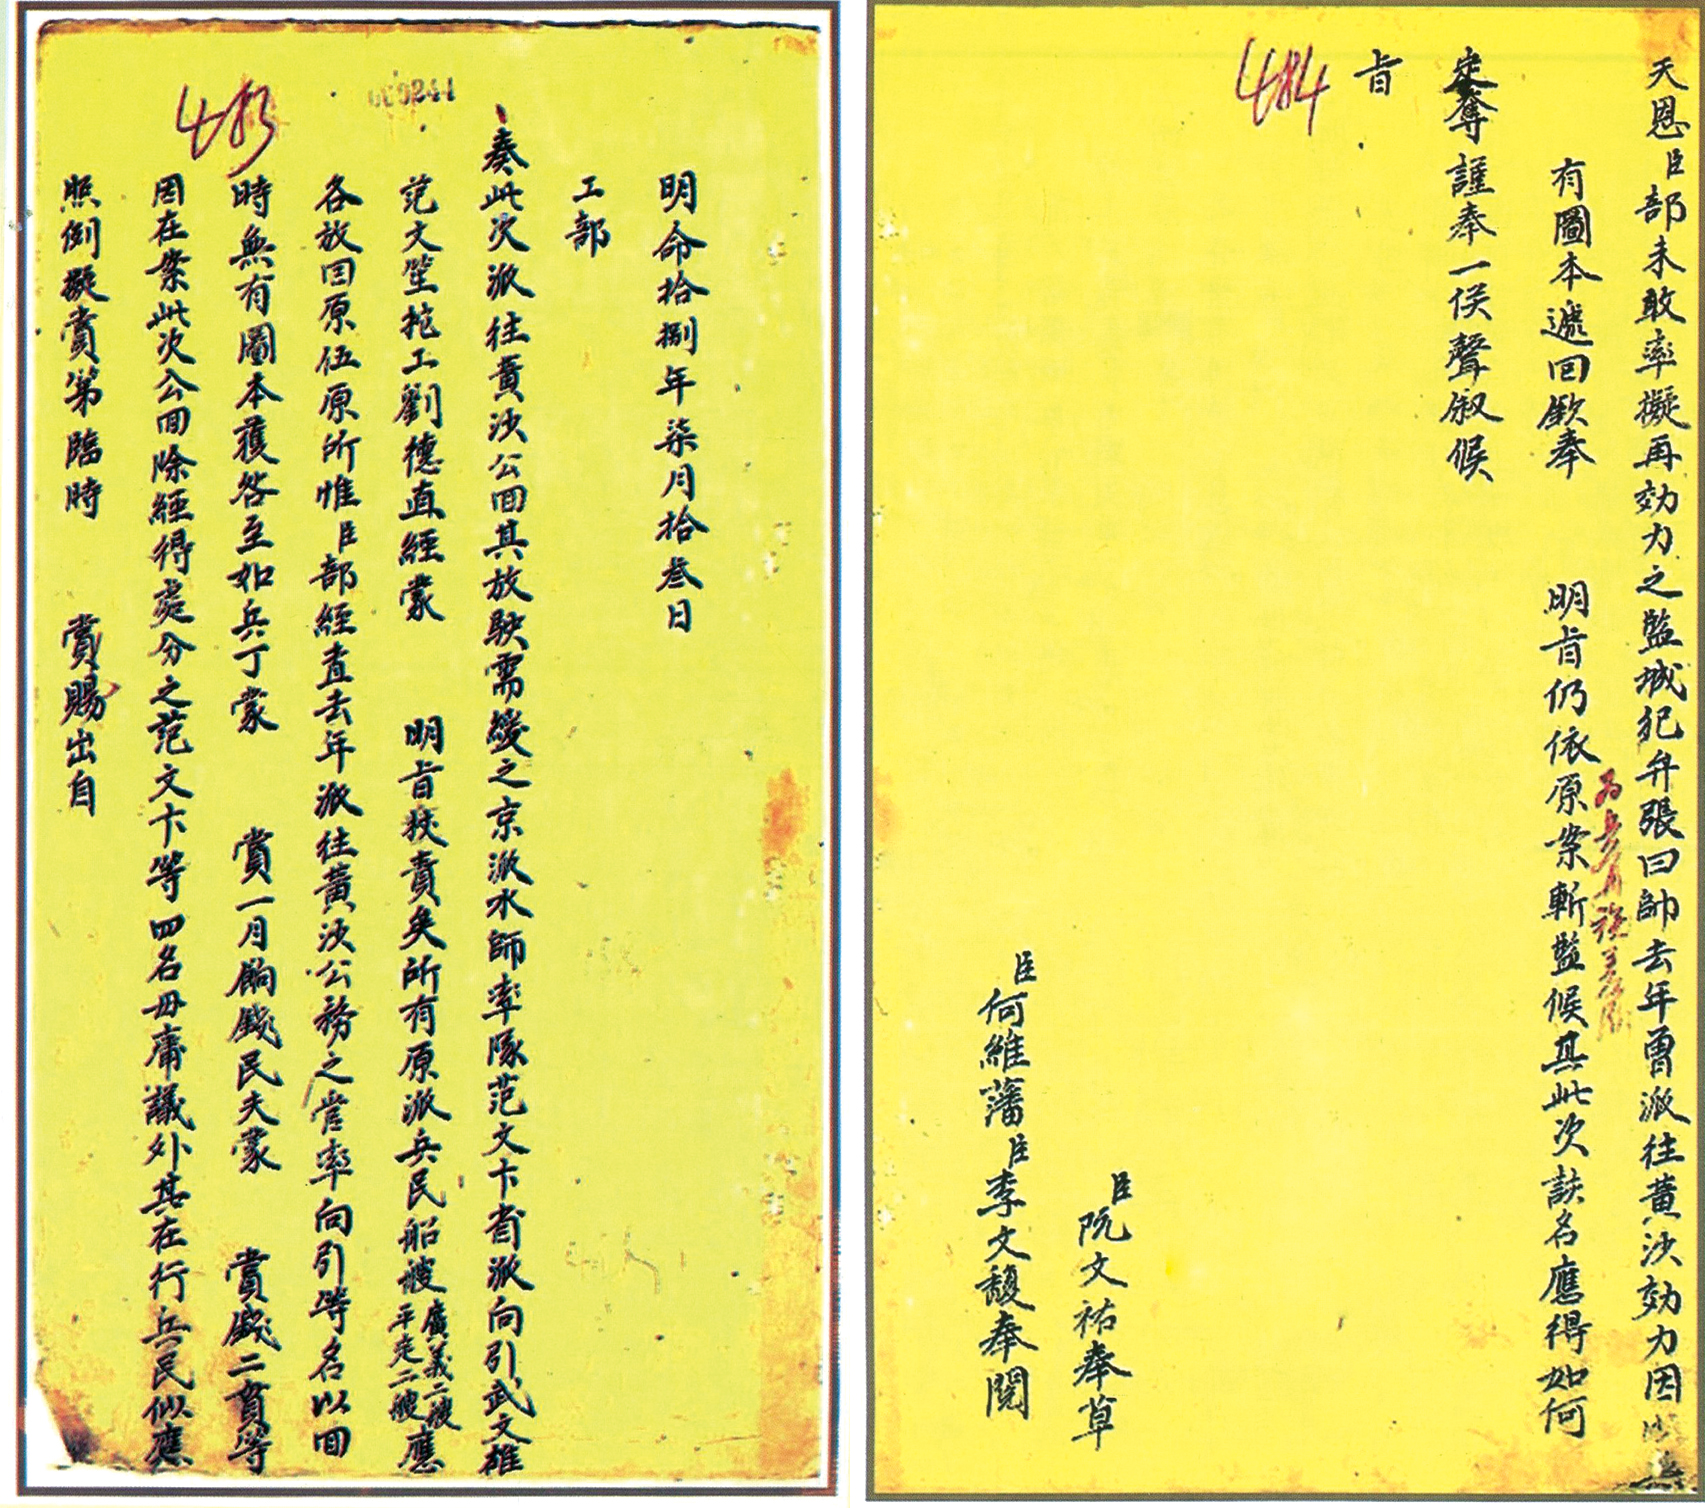 明命拾捌年柒月拾叁日
工部
奏此次派往黄沙公回其放駛需緩之京派水師率隊范文卞省派向引武文雄
范文笙柁工劉德直經蒙 明旨扶責矣所有原派兵民船艘廣義二艘平定二艘應
各放回原伍原所惟臣部經查去年派往黃沙公務之管率向引等名以回
時無有圖本獲咎至如兵丁蒙 賞一月餉錢民夫蒙 賞錢二貫等
因在案此次公回除經得處分之范文卞等四名毋庸議外其在行兵民似應
照例擬賞第臨時 賞賜出自
483
天恩臣部未敢率擬再効力之監城犯弁張曰帥去年曾派往黄沙効力因
有圖本遞回欽奉 明旨仍依原案斬監候其此次該名應得如何
定奪謹奉一俟聲敘候
旨
484
臣阮文祐奉草
臣何維藩臣李文馥奉閱